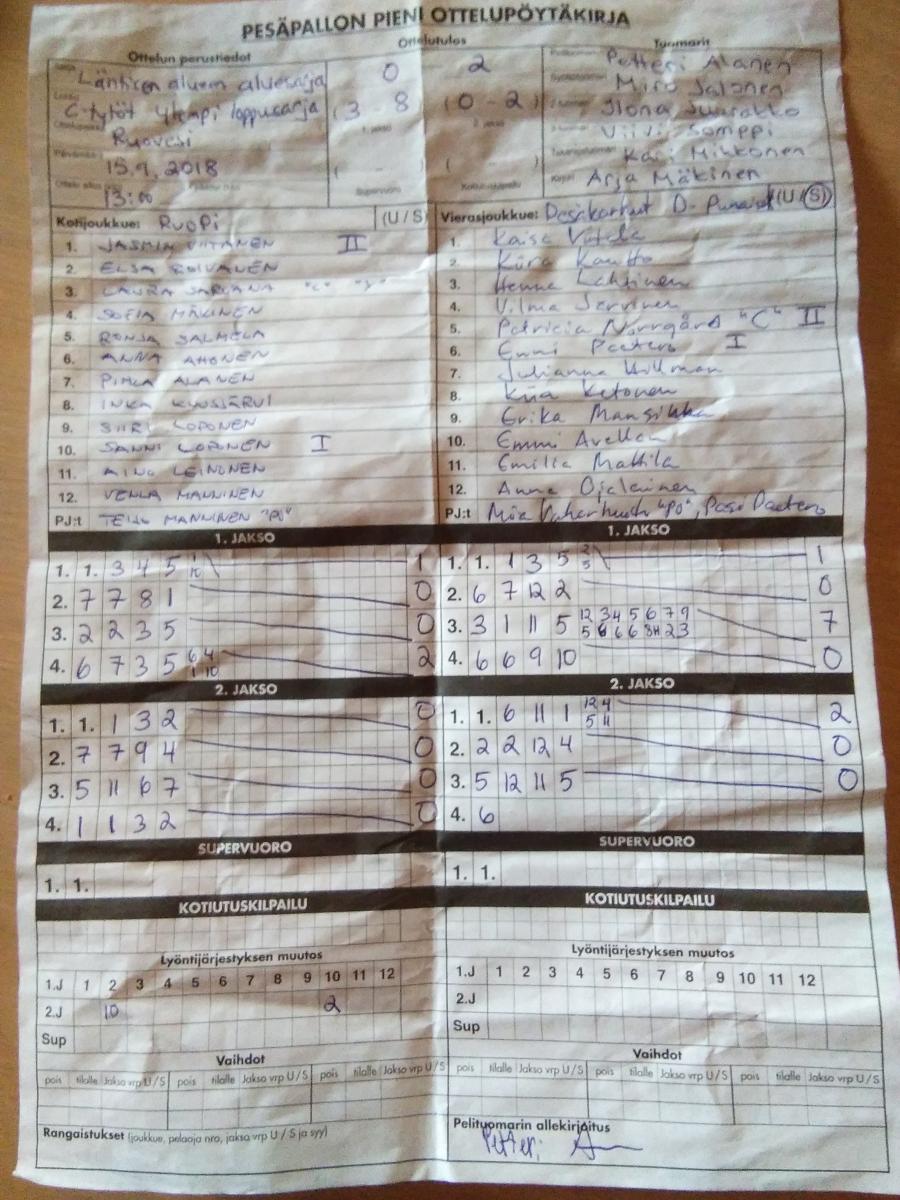 PESÄPALLON PIENI OTTELUPÖYTÄKIRJA
Ottelun perustiedot
Ottelutulos
Tuomarit
Läntisen alueen aluesarja
0 2
Petteri Alanen
C-tytöt ylempi loppusarja
(3 - 8 (0 - 2)
Miro Salonen
Ruovesi
Ilona
Viivi Somppi
15.9.2018
( - ( - )
Kari Mikkonen
13:00
Supervuoro
Kirjuri Arja Mäkinen
Kotijoukkue: RuoPi (U / S)
1. JASMIN VIITANEN II
2. ELSA ROIVANEN
3. LAURA SARGANA "C"
4. SOFIA MÄKINEN
5. RONJA SALMELA
6. ANNA AHONEN
7. PIHLA ALANEN
8. INKA
9. SIIRI LOPONEN
10. SANNI LOPONEN I
11. AINO LEINONEN
12. VENLA MANNINEN
PJ:t MANNINEN "PJ"
Vierasjoukkue: Pesäkarhut D- (U / S)
1. Kaisa
2. Kiira Kautto
3. Henna Lahtinen
4. Vilma Jarvinen
5. Patricia Norrgård "C" II
6. Emmi Peeters I
7. Julianna Hillman
8. Kiia Ketonen
9. Erika Mansikka
10. Emmi Avellan
11. Emilia Mattila
12. Anna Ojaleinen
PJ:t Mia "PJ", Pasi
1. JAKSO
1. 1. 3 4 5 1
2. 7 7 8 1 0
3. 2 2 3 5 0
4. 6 7 3 5 6 4 2
1 10
2. JAKSO
1. 1. 1 3 2 0
2. 7 7 9 4 0
3. 5 11 6 7 0
4. 1 1 3 2 0
SUPERVUORO
1. 1.
KOTIUTUSKILPAILU
Lyöntijärjestyksen muutos
1.J 1 2 3 4 5 6 7 8 9 10 11 12
2.J 10 2
Sup
Vaihdot
pois tilalle Jakso vrp U/S pois tilalle Jakso vrp U/S pois tilalle Jakso vrp U/S
Rangaistukset (joukkue, pelaaja nro, jakso vrp U / S ja syy)
1. JAKSO
1. 1. 1 3 5 2 1
5
2. 6 7 12 2 0
3. 3 1 11 5 12 3 4 5 6 7 9 7
4. 6 6 9 10 0
2. JAKSO
1. 1. 6 11 1 12 4 2
5 11
2. 2 2 12 4 0
3. 5 12 11 5 0
4. 6
SUPERVUORO
1. 1.
KOTIUTUSKILPAILU
Lyöntijärjestyksen muutos
1.J 1 2 3 4 5 6 7 8 9 10 11 12
2.J
Sup
Vaihdot
pois tilalle Jakso vrp U/S pois tilalle Jakso vrp U/S pois tilalle Jakso vrp U/S
Pelituomarin allekirjoitus
Petteri